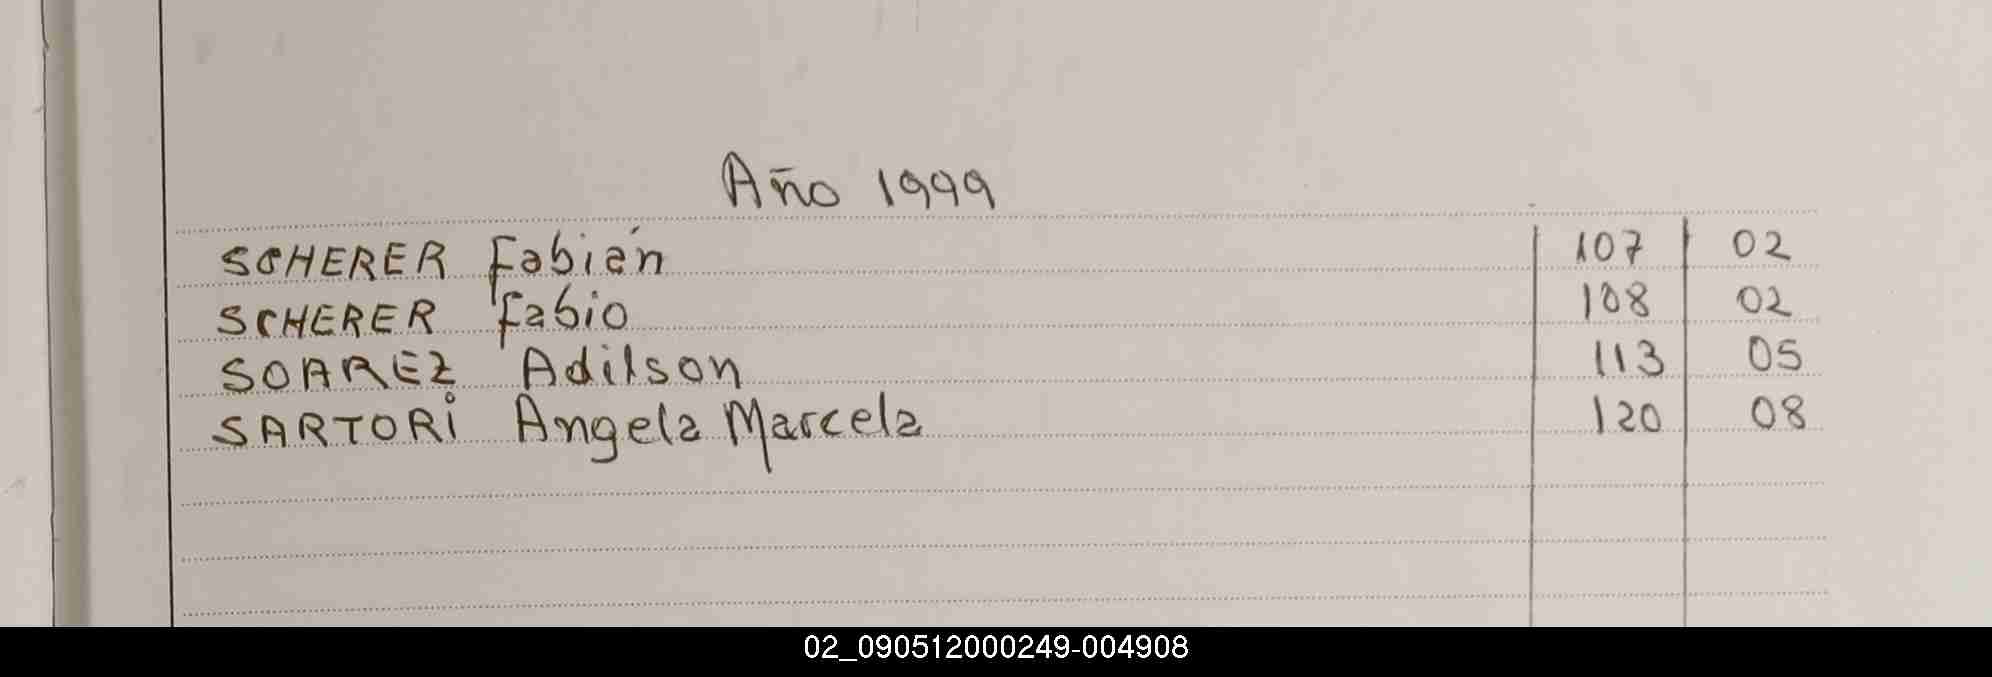 Año 1999
SCHERER Fabián 107 02
SCHERER Fabio 108 02
SOAREZ Adilson 113 05
SARTORi Angela Marcela 120 08
02_090512000249-004908